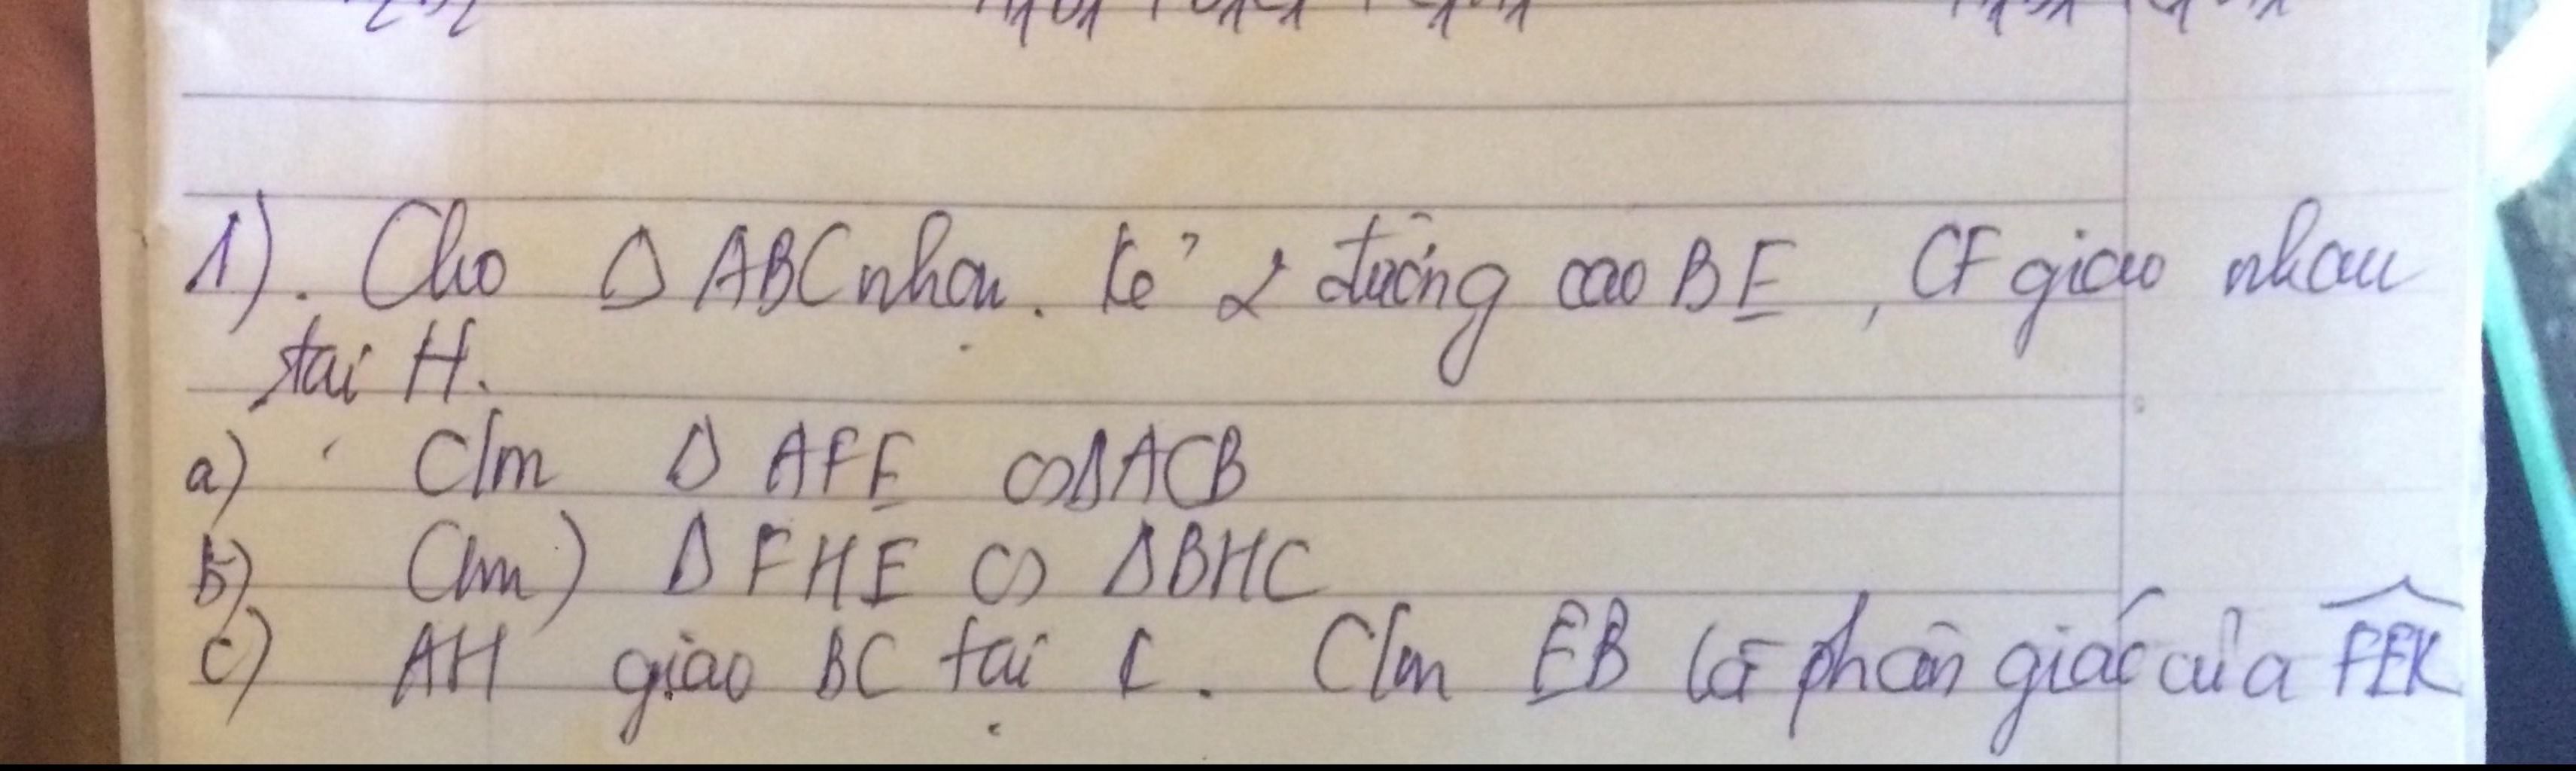 1). Cho Δ ABC nhọn. Kẻ 2 đường cao BE, CF giao nhau
tại H.
a) C/m Δ AFE ∽ Δ ACB
b) C/m) Δ FHE ∽ Δ BHC
c) AH giao BC tại K. C/m EB là phân giác của FEK